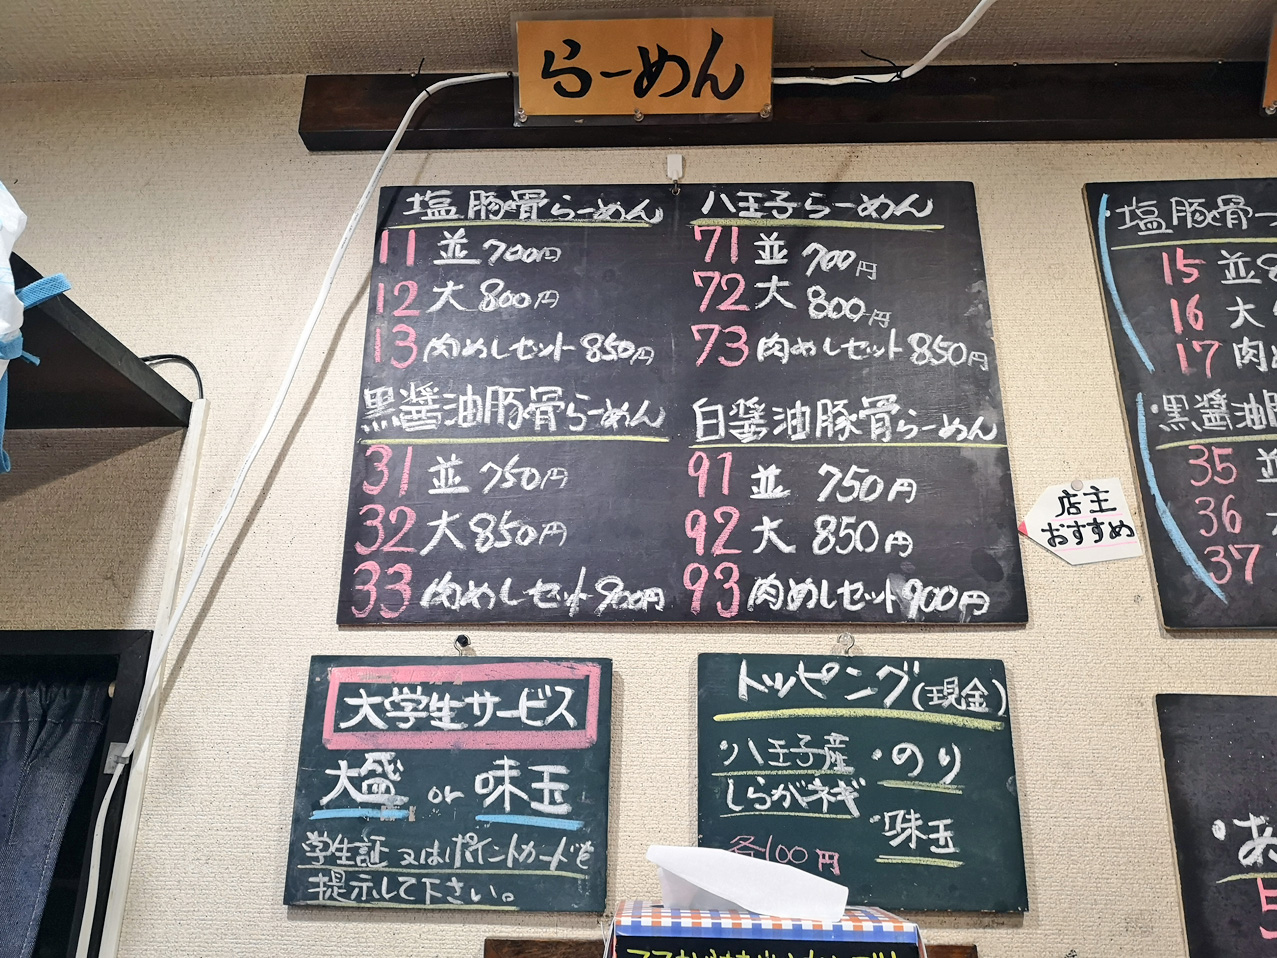 らーめん
塩豚骨らーめん
11 並 700円
12 大 800円
13 肉めしセット 850円
八王子らーめん
71 並 700円
72 大 800円
73 肉めしセット 850円
黒醤油豚骨らーめん
31 並 750円
32 大 850円
33 肉めしセット 900円
白醤油豚骨らーめん
91 並 750円
92 大 850円
93 肉めしセット 900円
店主
おすすめ
・塩豚骨つ
15 並
16 大
17 肉
・黒醤油
35 並
36
37
大学生サービス
大盛 or 味玉
学生証又はポイントカードを
提示して下さい。
トッピング(現金)
・八王子産
しらがネギ
・のり
・味玉
各100円
・あ